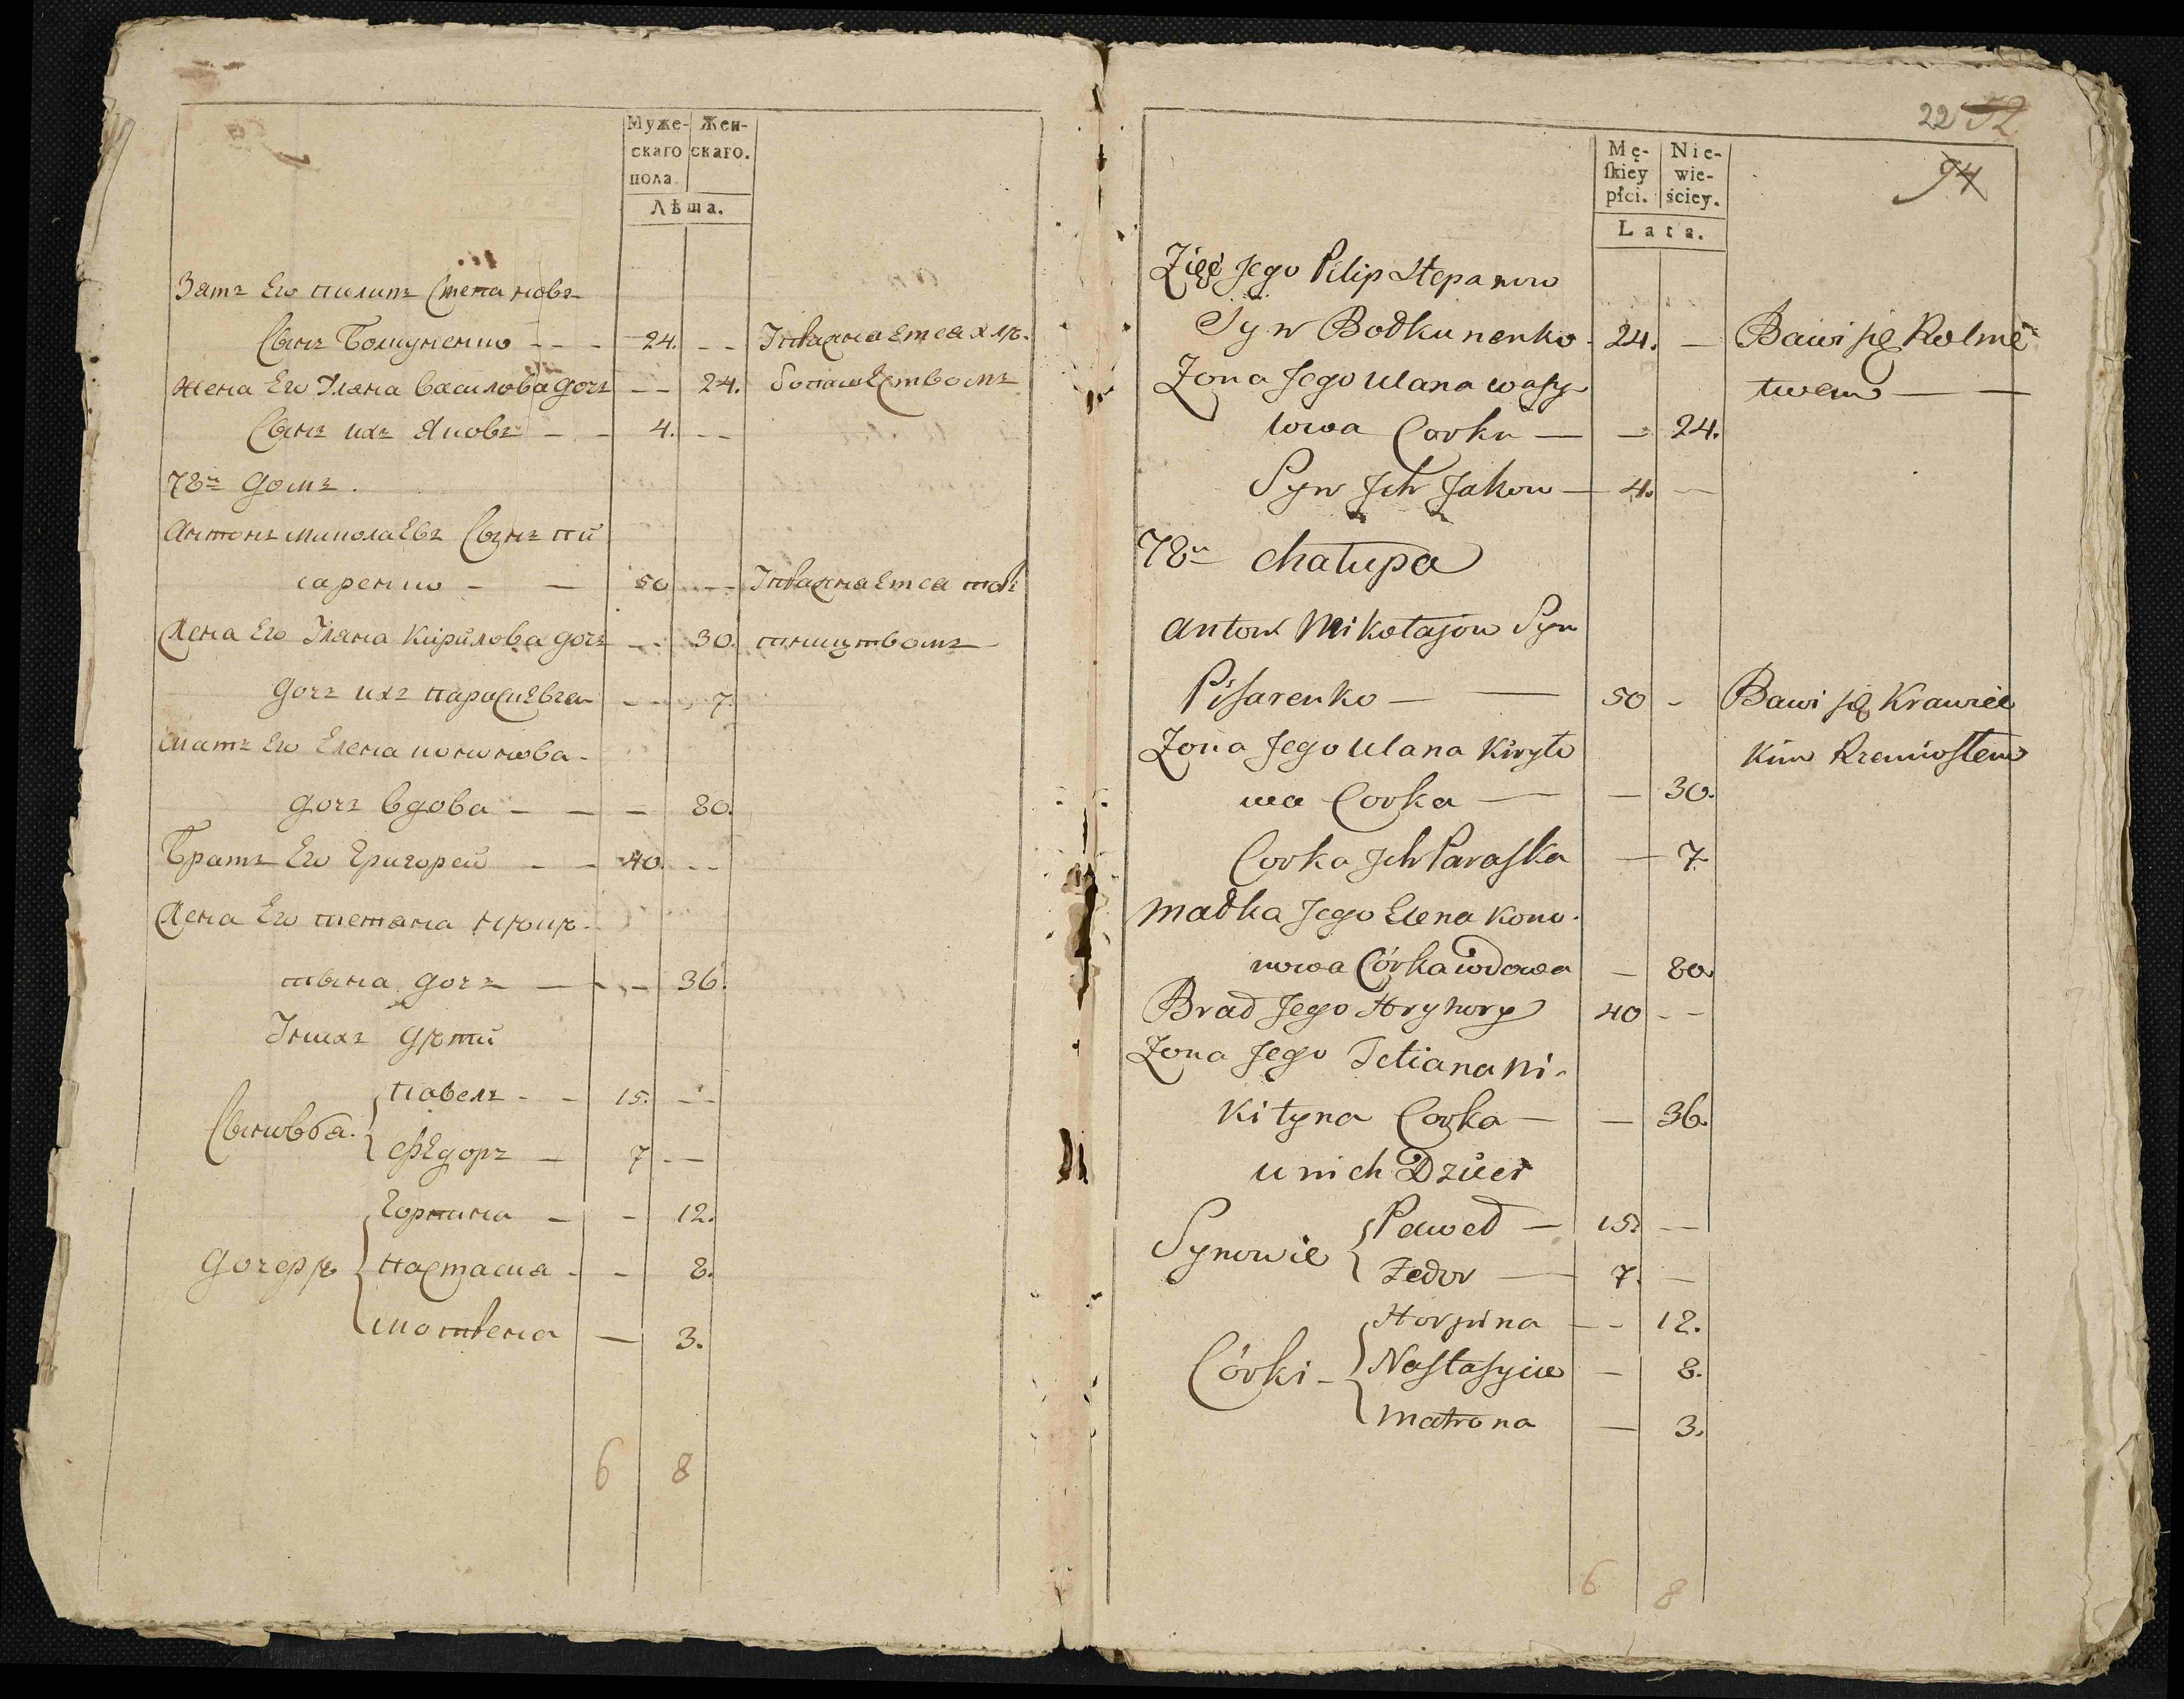 Муже-
скаго
пола.
Жен-
скаго.
Лѣта.
Зятъ Его пилипъ Степановъ
Сынъ Боткуненко - - - 24. - -
Жена Его Уляна Василова дочь - - 24.
Сынъ ихъ Яковъ - - 4. - -
78й домъ.
Антонъ миколаевъ Сынъ пи
саренко - - 50 - -
Жена Его Уляна Кирилова дочь - - 30.
дочь ихъ - - 7.
матъ Его Елена кононова-
дочь вдова - - - 80.
Братъ Его Григорей - - 40. - -
Жена Его тетяна ники-
тына дочь - - - 36.
У нихъ дѣти
Сыновья.
павелъ - - 15. - -
Федоръ - 7 - -
дочерѣ
Горпина - - 12.
настасия - - 8.
мотрена - 3.
6 8
22 52
94
Mę-
ſkiey
płci.
Nie-
wie-
ściey.
Lata.
Zięć Jego Pilip Stepanow
Syn Bodkunenko - 24. - Bawi się Rolnic
twem - -
Zona Jego Ulana wasy-
lowa Corka - - 24.
Syn Ich Jakow - 4. -
78a chałupa
Anton Mikołajow Syn
Pisarenko - - 50 - Bawi się Krawiec
kim Rzemiosłem
Zona Jego Ulana Kiryło
wa Corka - - 30.
Corka Ich Paraska - 7.
Madka Jego Elena Kono-
nowa Córka wdowa - 80.
Brad Jego Hryhory 40 - -
Zona Jego Tetiana Ni-
kityna Corka - - 36.
u nich Dzieci
Synowie
Paweł - 15. -
Fedor - 7. -
Córki -
Horpina - - 12.
Nastasyia - 8.
Matrona - 3.
6 8